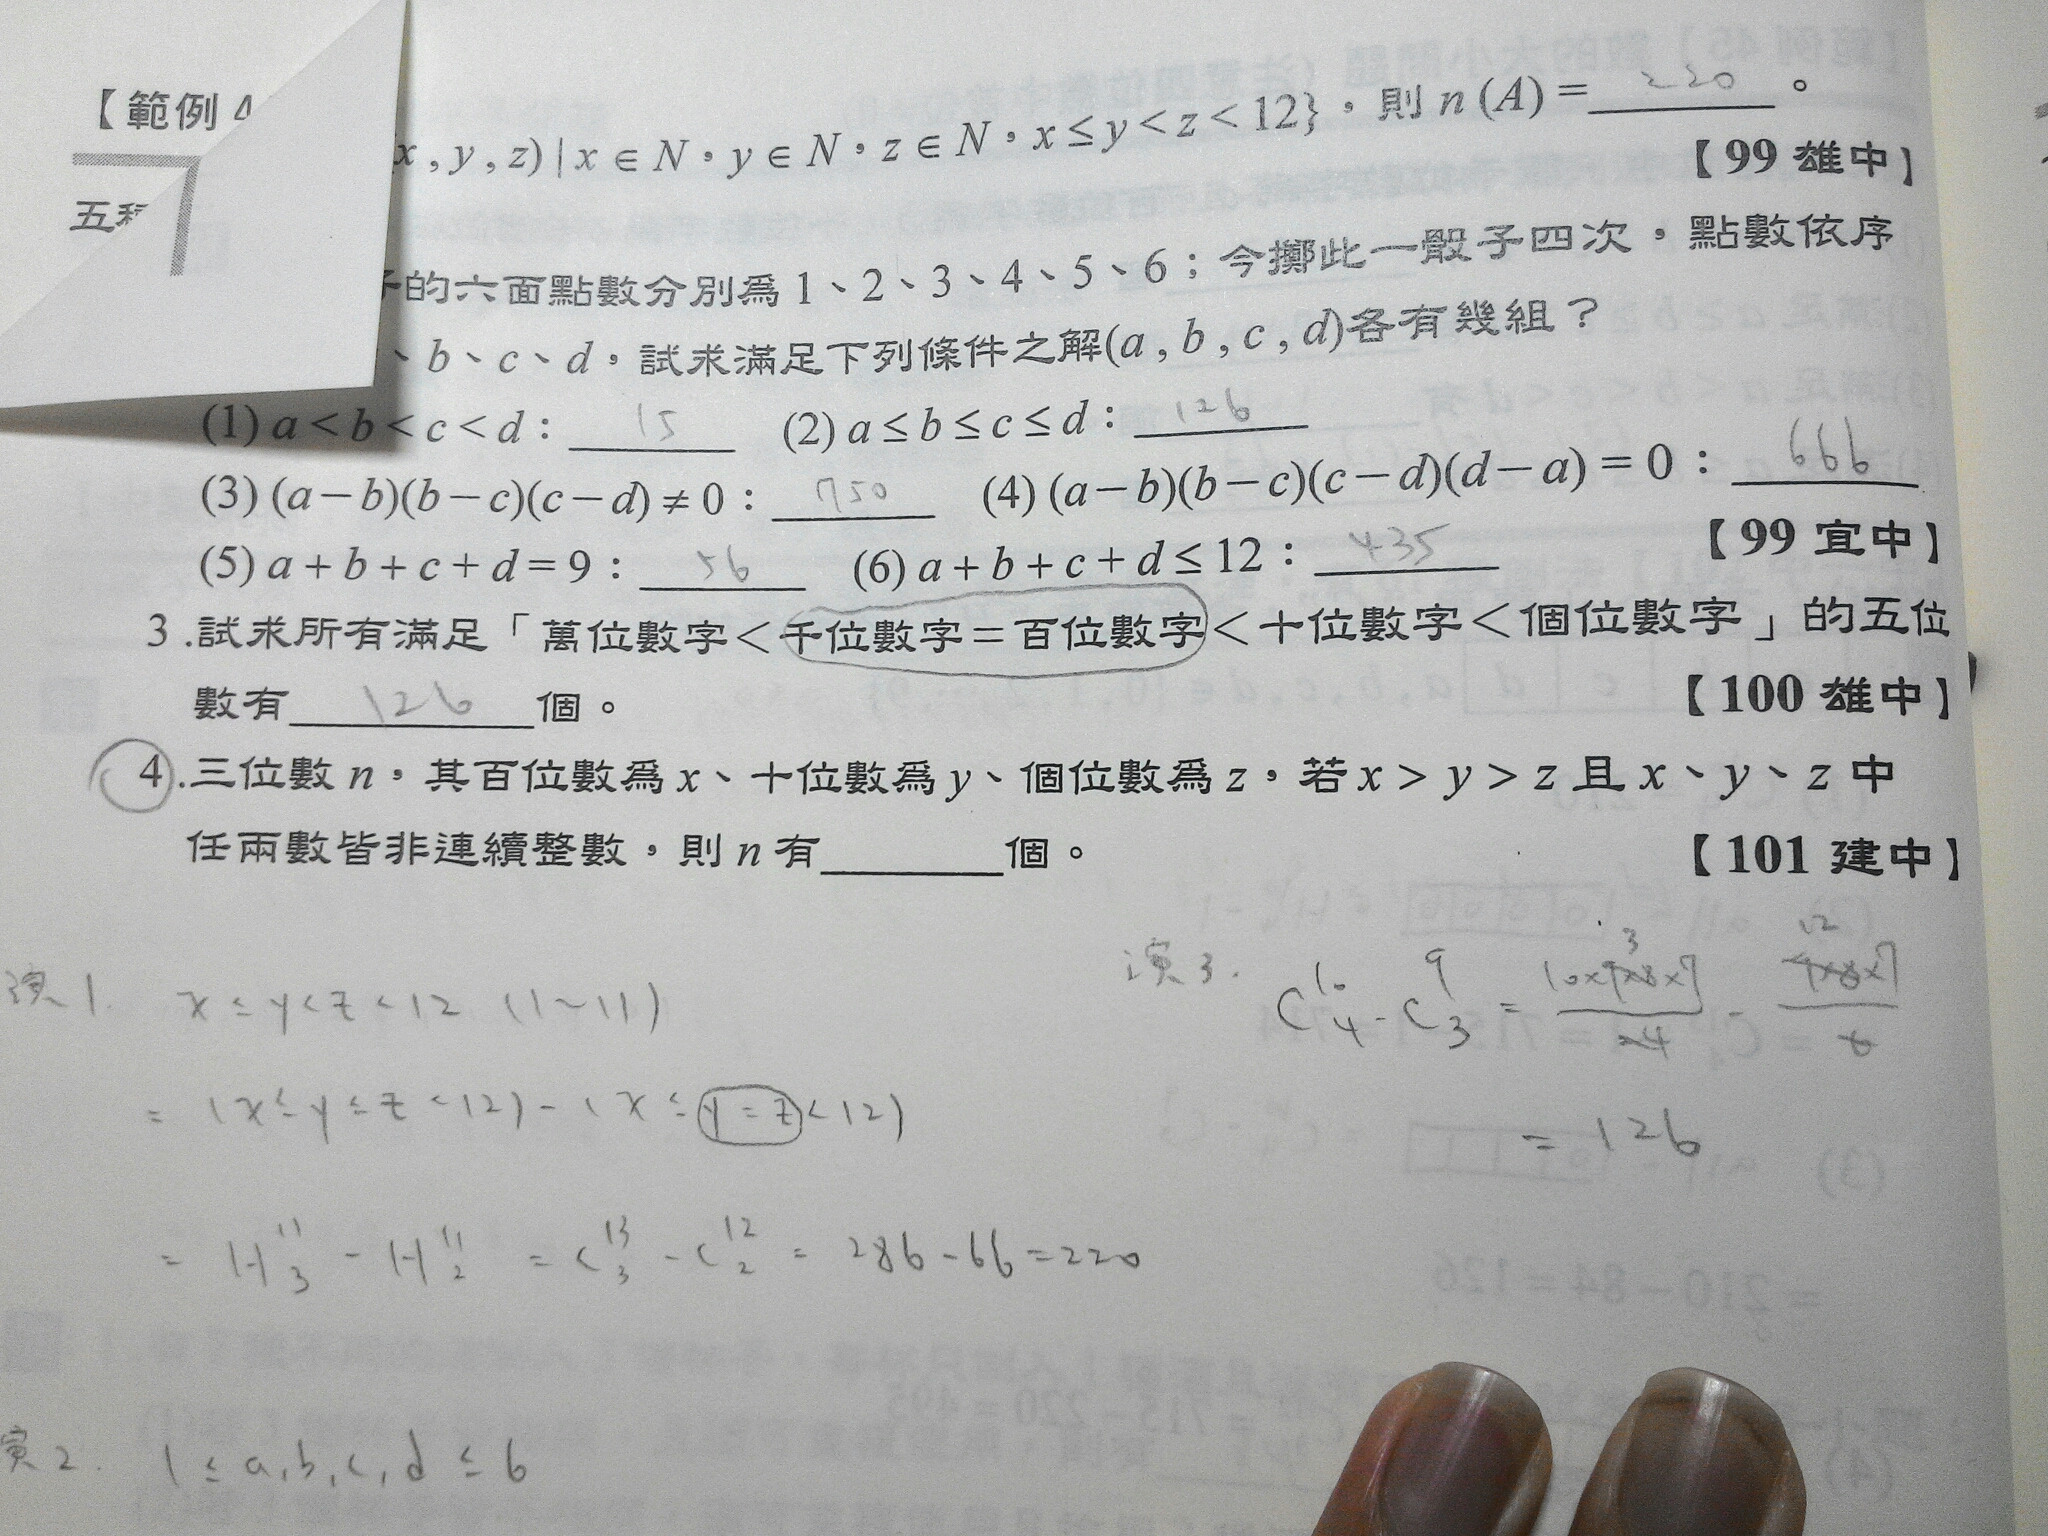 【範例 4
x , y , z) | x ∈ N，y ∈ N，z ∈ N，x ≤ y < z < 12}，則 n (A) = 220 。
【99 雄中】
五種
的六面點數分別為 1、2、3、4、5、6；今擲此一骰子四次，點數依序
、b、c、d，試求滿足下列條件之解(a , b , c , d)各有幾組？
(1) a < b < c < d： 15 (2) a ≤ b ≤ c ≤ d： 126
(3) (a－b)(b－c)(c－d) ≠ 0： 750 (4) (a－b)(b－c)(c－d)(d－a) = 0： 666
(5) a + b + c + d = 9： 56 (6) a + b + c + d ≤ 12： 435 【99 宜中】
3 .試求所有滿足「萬位數字＜千位數字＝百位數字＜十位數字＜個位數字」的五位
數有 126 個。 【100 雄中】
4 .三位數 n，其百位數為 x、十位數為 y、個位數為 z，若 x > y > z 且 x、y、z 中
任兩數皆非連續整數，則 n 有 個。 【101 建中】
演1. x ≤ y < z < 12 (1~11)
= (x ≤ y ≤ z < 12) - (x ≤ y = z < 12)
= H¹¹₃ - H¹¹₂ = C¹³₃ - C¹²₂ = 286 - 66 = 220
演3. C¹⁰₄ - C⁹₃ = 10×9×8×7/24 - 9×8×7/6
= 126
演2. 1 ≤ a, b, c, d ≤ 6